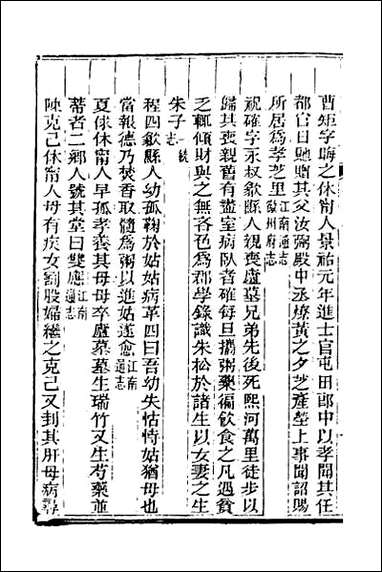 曹矩字誨之休甯人景祐元年進士官屯田郎中以孝聞其任
都官日馳贈其父汝弼殿中丞燎黃之夕芝產塋上事聞詔賜
所居爲孝芝里江南通志徽州府志
祝確字永叔歙縣人親喪廬墓兄弟先後死熙河萬里徒步以
歸其喪親舊有盡室病臥者確每旦攜粥藥徧飲食之凡遇貧
乏輒傾財與之無吝色爲郡學錄識朱松於諸生以女妻之生
朱子續志
程四歙縣人幼孤鞠於姑姑病革四曰吾幼失怙恃姑猶母也
當報德乃焚香取髓爲粥以進姑遂愈江南通志
夏俅休甯人早孤孝養其母母卒廬墓墓生瑞竹又生芍藥並
蒂者二鄉人號其堂曰雙應江南通志
陳克己休甯人母有疾女劉股婦繼之克己又刲其肝母病尋